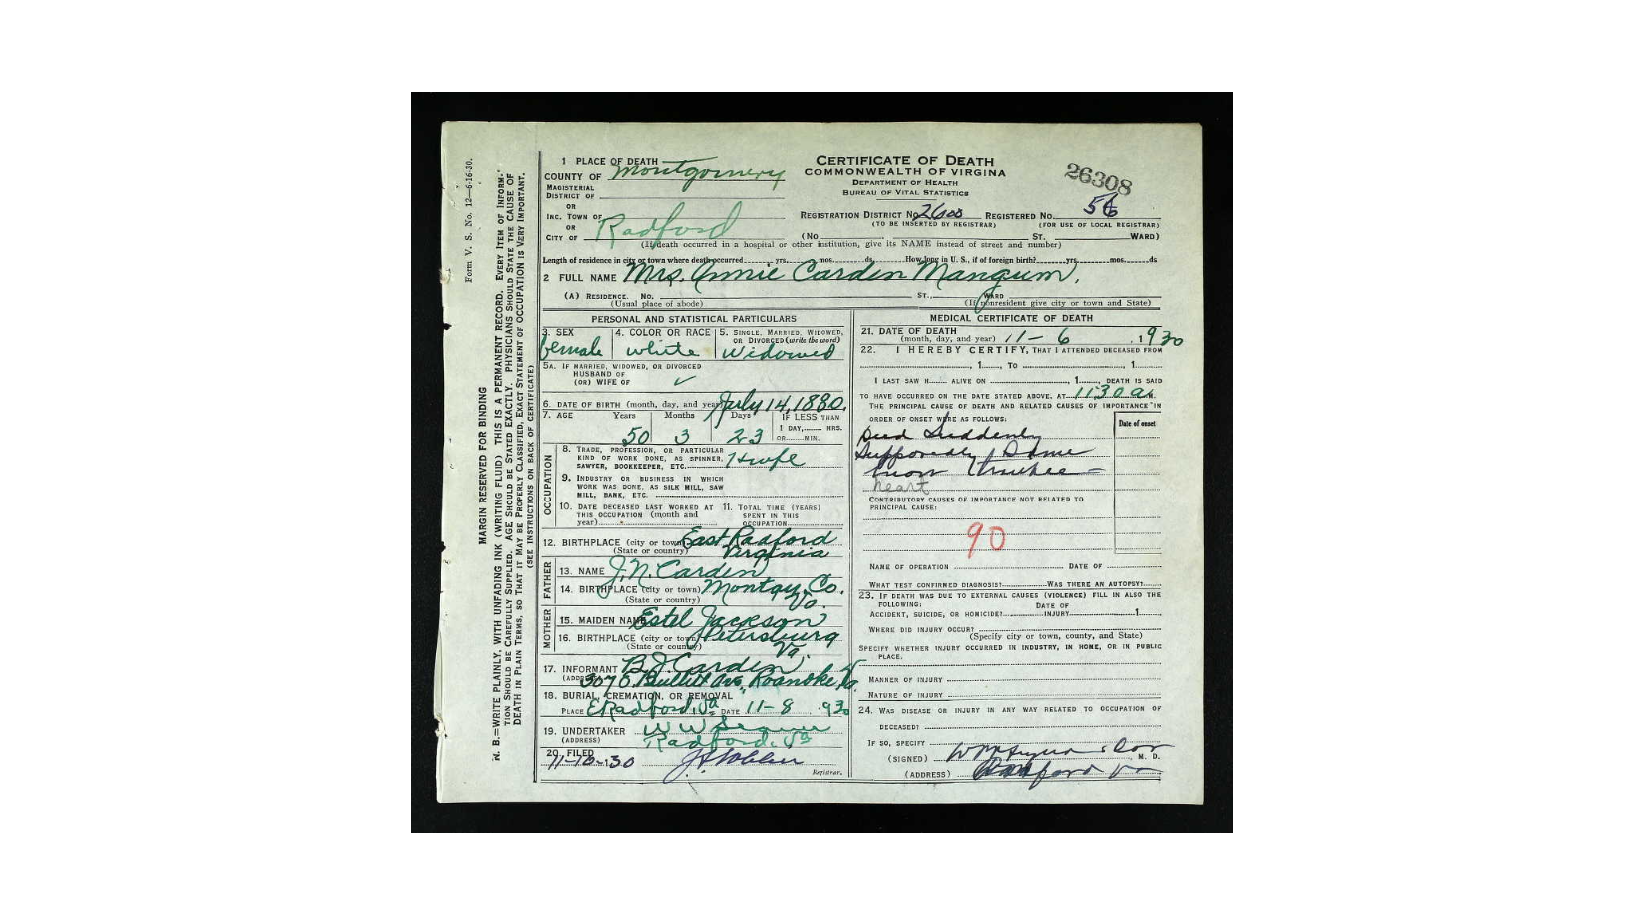 Form V. S. No. 12—6-16-30.
MARGIN RESERVED FOR BINDING
N. B.—WRITE PLAINLY, WITH UNFADING INK (WRITING FLUID) THIS IS A PERMANENT RECORD. EVERY ITEM OF INFORM-
TION SHOULD BE CAREFULLY SUPPLIED. AGE SHOULD BE STATED EXACTLY. PHYSICIANS SHOULD STATE THE CAUSE OF
DEATH IN PLAIN TERMS, SO THAT IT MAY BE PROPERLY CLASSIFIED. EXACT STATEMENT OF OCCUPATION IS VERY IMPORTANT.
(SEE INSTRUCTIONS ON BACK OF CERTIFICATE)
CERTIFICATE OF DEATH
COMMONWEALTH OF VIRGINIA
DEPARTMENT OF HEALTH
BUREAU OF VITAL STATISTICS
26308
1 PLACE OF DEATH
COUNTY OF Montgomery
MAGISTERIAL
DISTRICT OF
OR
INC. TOWN OF Radford
OR
CITY OF
REGISTRATION DISTRICT No. 2600 REGISTERED No. 56
(TO BE INSERTED BY REGISTRAR) (FOR USE OF LOCAL REGISTRAR)
(No. ST. WARD)
(If death occurred in a hospital or other institution, give its NAME instead of street and number)
Length of residence in city or town where death occurred yrs. mos. ds. How long in U. S., if of foreign birth? yrs. mos. ds
2 FULL NAME Mrs. Annie Carden Mangum.
(A) RESIDENCE. No. ST., WARD
(Usual place of abode) (If nonresident give city or town and State)
PERSONAL AND STATISTICAL PARTICULARS
3. SEX 4. COLOR OR RACE 5. SINGLE, MARRIED, WIDOWED,
OR DIVORCED (write the word)
female white Widowed
5A. IF MARRIED, WIDOWED, OR DIVORCED
HUSBAND OF
(OR) WIFE OF ✓
6. DATE OF BIRTH (month, day, and year) July 14, 1880.
7. AGE Years Months Days IF LESS THAN
1 DAY, HRS.
50 3 23 OR MIN.
OCCUPATION
8. TRADE, PROFESSION, OR PARTICULAR
KIND OF WORK DONE, AS SPINNER,
SAWYER, BOOKKEEPER, ETC. Hswfe
9. INDUSTRY OR BUSINESS IN WHICH
WORK WAS DONE, AS SILK MILL, SAW
MILL, BANK, ETC.
10. DATE DECEASED LAST WORKED AT 11. TOTAL TIME (YEARS)
THIS OCCUPATION (month and SPENT IN THIS
year) OCCUPATION
12. BIRTHPLACE (city or town) East Radford
(State or country) Virginia
FATHER
13. NAME J. N. Carden
14. BIRTHPLACE (city or town) Montgy. Co.
(State or country) Va.
MOTHER
15. MAIDEN NAME Estel Jackson
16. BIRTHPLACE (city or town) Petersburg
(State or country) Va.
17. INFORMANT B. J. Carden
(ADDRESS) Bullitt Ave, Roanoke Va.
18. BURIAL, CREMATION, OR REMOVAL
PLACE E Radford, Va DATE 11-8 1930
19. UNDERTAKER W W
(ADDRESS) Radford, Va
20. FILED
Registrar.
MEDICAL CERTIFICATE OF DEATH
21. DATE OF DEATH
(month, day, and year) 11-6, 1930
22. I HEREBY CERTIFY, THAT I ATTENDED DECEASED FROM
, 1 , TO , 1
I LAST SAW H ALIVE ON , 1 DEATH IS SAID
TO HAVE OCCURRED ON THE DATE STATED ABOVE, AT 11:30 a M.
THE PRINCIPAL CAUSE OF DEATH AND RELATED CAUSES OF IMPORTANCE IN
ORDER OF ONSET WERE AS FOLLOWS: Date of onset
Died Suddenly
Supposedly Some
from trouble —
heart
CONTRIBUTORY CAUSES OF IMPORTANCE NOT RELATED TO
PRINCIPAL CAUSE:
90
NAME OF OPERATION DATE OF
WHAT TEST CONFIRMED DIAGNOSIS? WAS THERE AN AUTOPSY?
23. IF DEATH WAS DUE TO EXTERNAL CAUSES (VIOLENCE) FILL IN ALSO THE
FOLLOWING: DATE OF
ACCIDENT, SUICIDE, OR HOMICIDE? INJURY 1
WHERE DID INJURY OCCUR?
(Specify city or town, county, and State)
SPECIFY WHETHER INJURY OCCURRED IN INDUSTRY, IN HOME, OR IN PUBLIC
PLACE.
MANNER OF INJURY
NATURE OF INJURY
24. WAS DISEASE OR INJURY IN ANY WAY RELATED TO OCCUPATION OF
DECEASED?
IF SO, SPECIFY
(SIGNED) M. D.
(ADDRESS) Radford Va